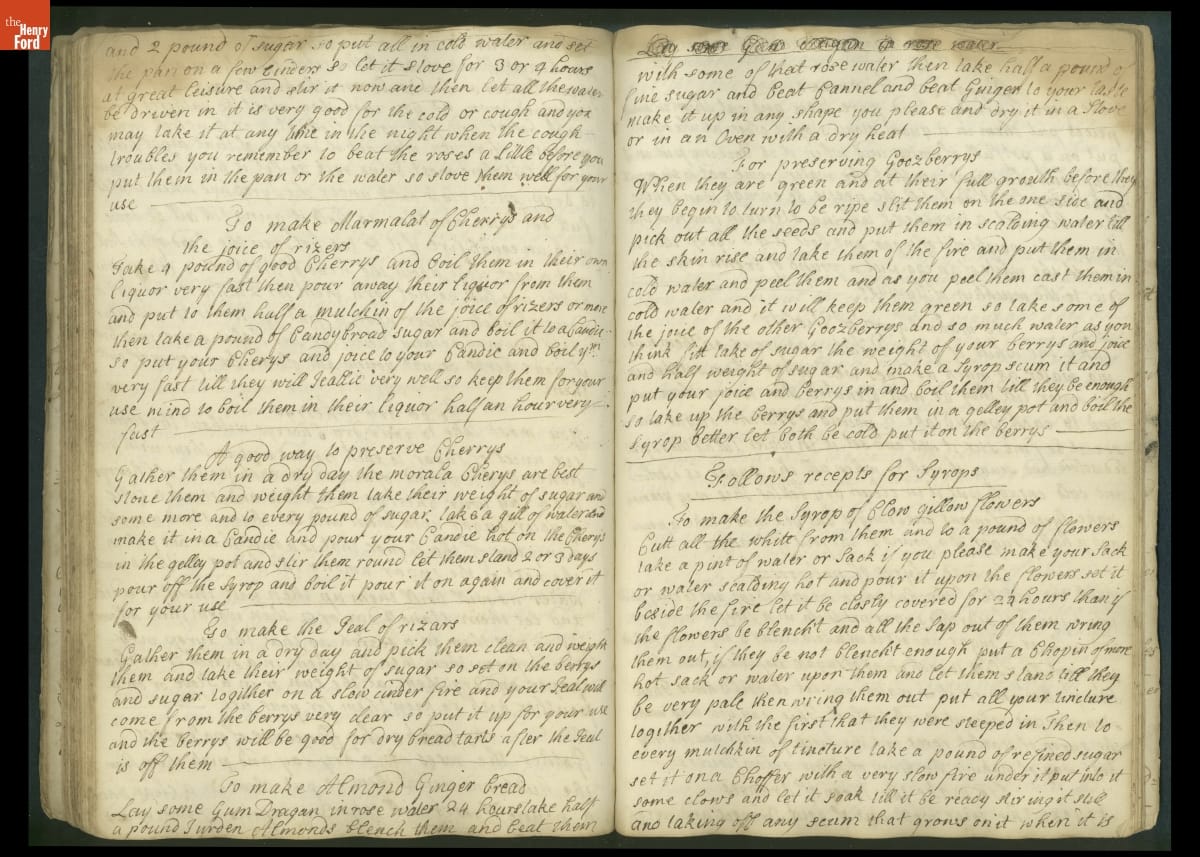 the
Henry
Ford
and 2 pound of sugar so put all in cold water and set
the pan on a few Cinders so let it stove for 3 or 4 hours
at great leisure and stir it now and then let all the water
be driven in it is very good for the cold or cough and you
may take it at any time in the night when the cough
troubles you remember to beat the roses a little before you
put them in the pan or the water so stove them well for your
use
To make Marmalat of Cherrys and
the joice of rizers
Take 4 pound of good Cherrys and boil them in their own
liquor very fast then pour away their liquor from them
and put to them half a mutchin of the joice of rizers or more
then take a pound of Candybroad sugar and boil it to a Candie
so put your Cherys and joice to your Candie and boil ym
very fast till they will Jeallie very well so keep them for your
use mind to boil them in their liquor half an hour very
fast
A good way to preserve Cherrys
Gather them in a dry day the morala Cherys are best
stone them and weight them take their weight of sugar and
some more and to every pound of sugar take a gill of water and
make it in a Candie and pour your Candie hot on the Cherys
in the gelley pot and stir them round let them stand 2 or 3 days
pour off the Syrop and boil it pour it on again and cover it
for your use
To make the Jeal of rizars
Gather them in a dry day and pick them clean and weight
them and take their weight of sugar so set on the berrys
and sugar togither on a slow cinder fire and your Jeal will
come from the berrys very clear so put it up for your use
and the berrys will be good for dry bread tarts after the Jeal
is off them
To make Almond Ginger bread
Lay some Gum Dragan in rose water 24 hours take half
a pound Jurden Almonds blench them and beat them
Lay some Gum Dragan in rose water
with some of that rose water then take half a pound of
fine sugar and beat Cannel and beat Ginger to your taste
make it up in any shape you please and dry it in a Stove
or in an Oven with a dry heat
For preserving Goozberrys
When they are green and at their full grouth before they
they begin to turn to be ripe slit them on the one side and
pick out all the seeds and put them in scalding water till
the skin rise and take them of the fire and put them in
cold water and peel them and as you peel them cast them in
cold water and it will keep them green so take some of
the joice of the other Goozberrys and so much water as you
think fitt take of sugar the weight of your berrys and joice
and half weight of sugar and make a Syrop scum it and
put your joice and berrys in and boil them till they be enough
so take up the berrys and put them in a gelley pot and boil the
syrop better let both be cold put it on the berrys
Follows recepts for Syrops
To make the Syrop of Clow gillow flowers
Cutt all the white from them and to a pound of flowers
take a pint of water or Sack if you please make your Sack
or water scalding hot and pour it upon the flowers set it
beside the fire let it be closly covered for 24 hours than if
the flowers be blencht and all the sap out of them wring
them out, if they be not blencht enough put a Chopin of more
hot sack or water upon them and let them stand till they
be very pale then wring them out put all your tincture
together with the first that they were steeped in Then to
every mutchkin of tincture take a pound of refined sugar
set it on a Choffer with a very slow fire under it put into it
some clows and let it soak till it be ready stiring it still
and taking off any scum that grows on it when it is